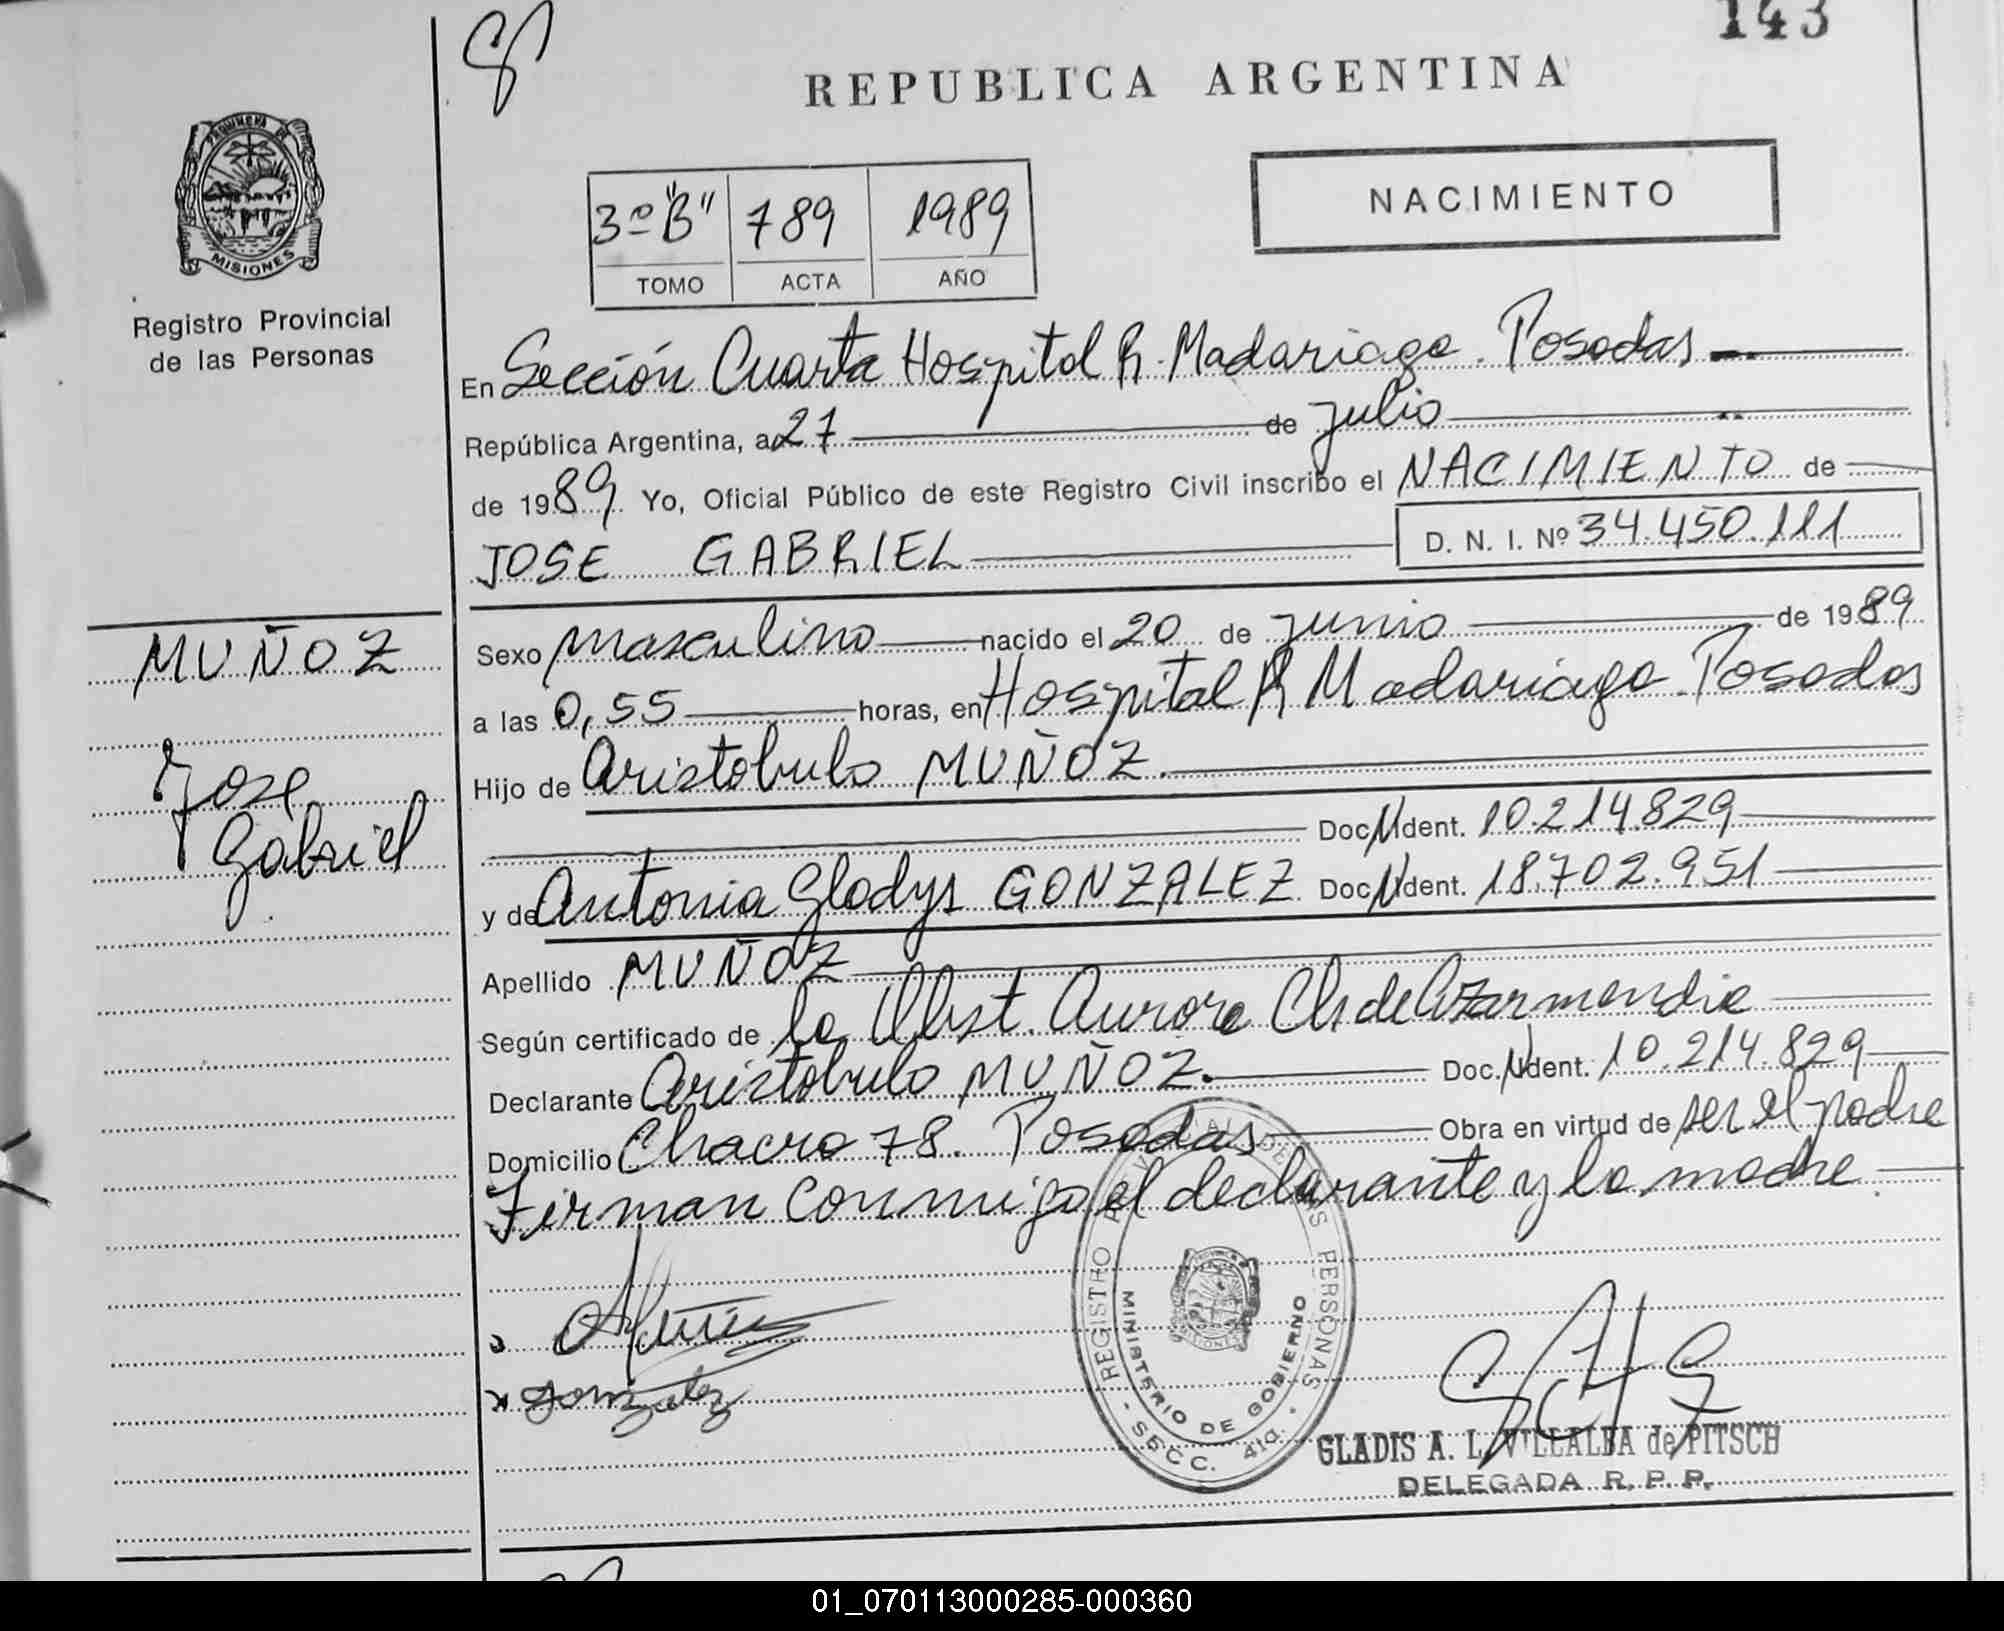 143
REPUBLICA ARGENTINA
PROVINCIA DE
MISIONES
Registro Provincial
de las Personas
NACIMIENTO
3º "B" 789 1989
TOMO ACTA AÑO
En Sección Cuarta Hospital R. Madariaga. Posadas
República Argentina, a 27 de julio
de 1989 Yo, Oficial Público de este Registro Civil inscribo el NACIMIENTO de
JOSE GABRIEL D. N. I. Nº 34.450.111
MUÑOZ
Jose
Gabriel
Sexo masculino nacido el 20 de junio de 1989
a las 0,55 horas, en Hospital R Madariaga. Posadas
Hijo de Aristobulo MUÑOZ.
Doc. Ident. 10.214.829
y de Antonia Gladys GONZALEZ Doc. Ident. 18.702.951
Apellido MUÑOZ
Según certificado de la Obst. Aurora Ch de Azarmendia
Declarante Aristobulo MUÑOZ. Doc. Ident. 10.214.829
Domicilio Chacra 78. Posadas Obra en virtud de ser el padre
Firman conmigo el declarante y la madre
Gonzalez
REGISTRO PROVINCIAL DE LAS PERSONAS
MINISTERIO DE GOBIERNO
SECC. 4ta.
GLADIS A. L. VILLALBA de PITSCH
DELEGADA R. P. P.
01_070113000285-000360